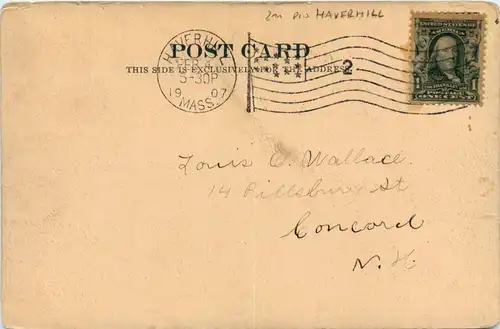 2m pic HAVERHILL
POST CARD
THIS SIDE IS EXCLUSIVELY FOR THE ADDRESS
HAVERHILL
FEB
5-30P
1907
MASS.
2
UNITED STATES OF
AMERICA
1 ONE CENT 1
Louis C. Wallace.
14 Pillsbury St
Concord
N.H.